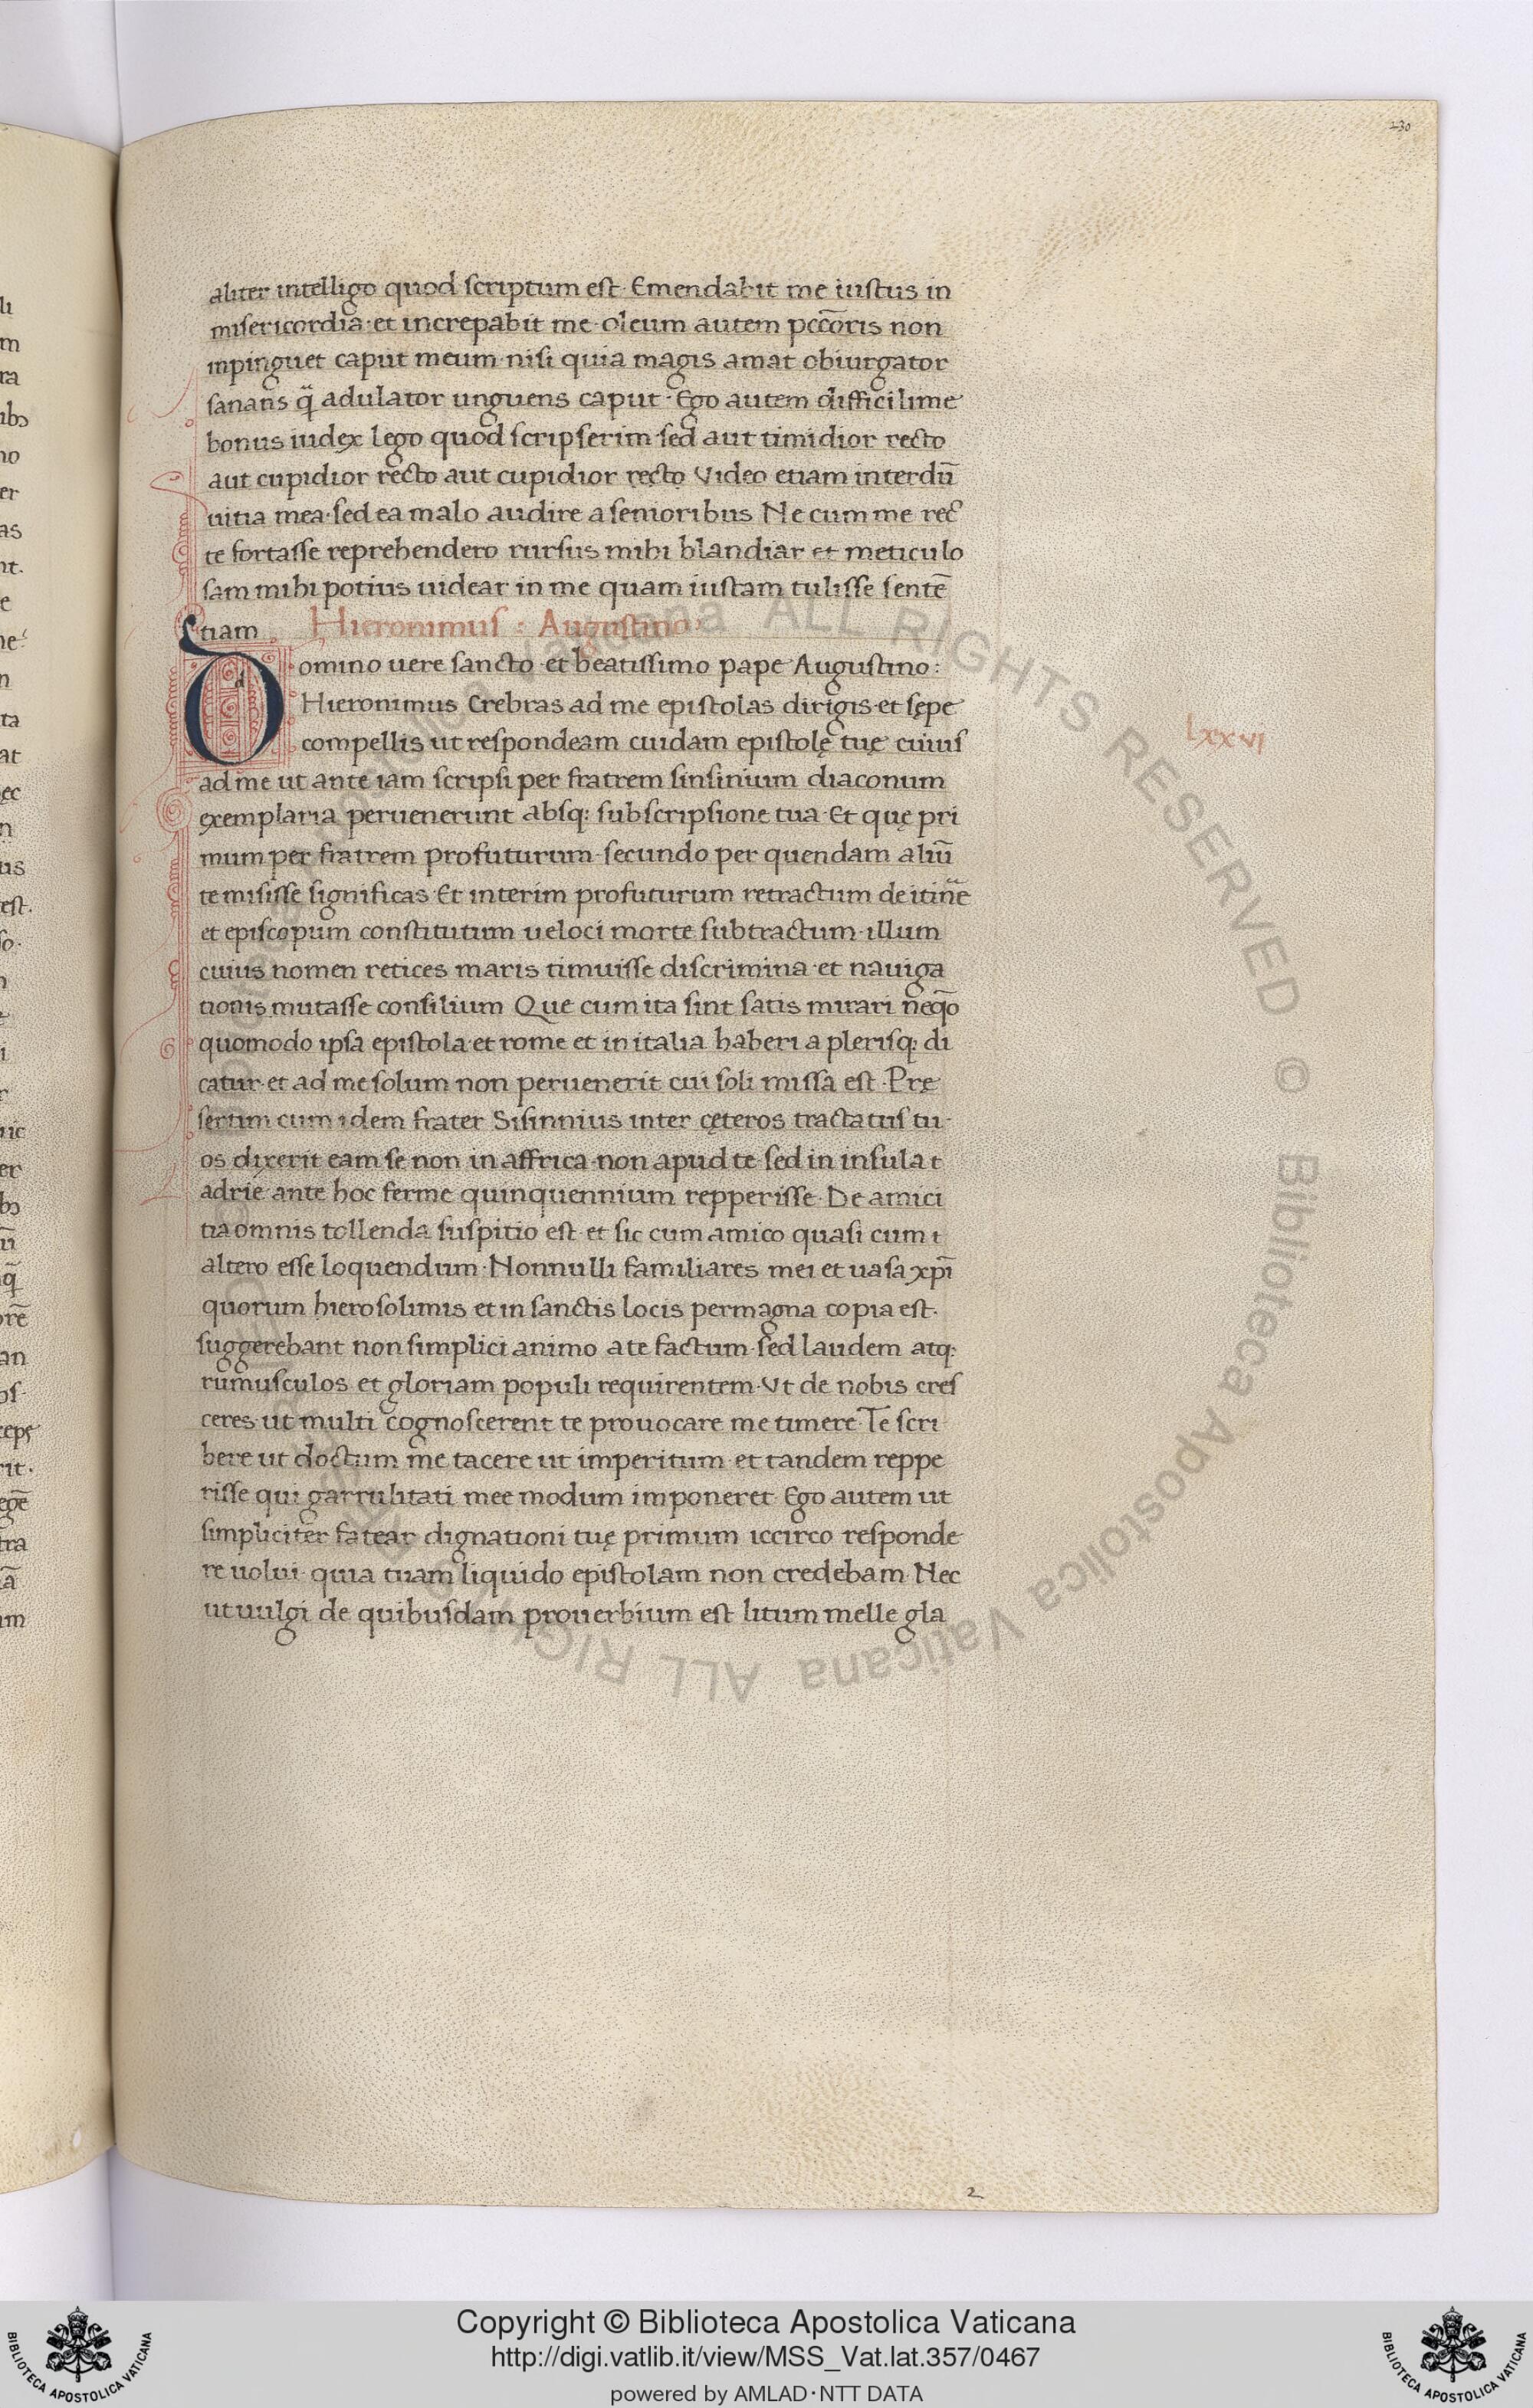 230
aliter intelligo quod scriptum est· Emendabit me iustus in
misericordia·et increpabit me·oleum autem pccōris non
inpinguet caput meum·nisi quia magis amat obiurgator
sanans q̃ adulator unguens caput· Ego autem difficilime
bonus iudex lego quod scripserim·sed aut timidior recto
aut cupidior recto aut cupidior recto Video etiam interdū
uitia mea·sed ea malo audire a senioribus Ne cum me rec
te fortasse reprehendero rursus mihi blandiar et meticulo
sam mihi potius uidear in me quam iustam tulisse sentē
tiam Hieronimus : Augustino:
Domino uere sancto·et beatissimo pape Augustino:
Hieronimus Crebras ad me epistolas dirigis·et sępe
compellis ut respondeam cuidam epistolę tuę cuius
LXXVI
ad me ut ante iam scripsi per fratrem sinsinium diaconum
exemplaria peruenerunt absq: subscripsione tua·Et quę pri
mum per fratrem profuturum·secundo per quendam aliū
te misisse significas·Et interim profuturum retractum de itinē
et episcopum constitutum ueloci morte subtractum·illum
cuius nomen retices maris timuisse discrimina·et nauiga
tionis mutasse consilium Que cum ita sint satis mirari neq̃o
quomodo ipsa epistola·et rome et in italia haberi a plerisq: di
catur·et ad me solum non peruenerit cui soli missa est·Prę
sertim cum idem frater Sisinnius inter cęteros tractatus tu-
os dixerit eam se non in affrica·non apud te·sed in insula t
adrie ante hoc ferme quinquennium repperisse·De amici
tia omnis tollenda suspitio est·et sic cum amico quasi cum t
altero esse loquendum·Nonnulli familiares mei et uasa xp̄i
quorum hierosolimis et in sanctis locis permagna copia est·
suggerebant non simplici animo a te factum·sed laudem atq:
rumusculos et gloriam populi requirentem·Ut de nobis cres
ceres·ut multi cognoscerent te prouocare me timere·Te scri
bere ut doctum me tacere ut imperitum·et tandem reppe
risse qui garrulitati mee modum imponeret·Ego autem ut
simpliciter fatear dignationi tuę primum iccirco responde
re uolui·quia tuam liquido epistolam non credebam·Nec
ut uulgi de quibusdam prouerbium est litum melle gla
2
Copyright © Biblioteca Apostolica Vaticana
http://digi.vatlib.it/view/MSS_Vat.lat.357/0467
powered by AMLAD·NTT DATA